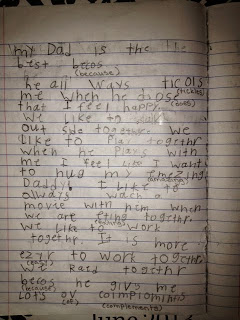 my Dad is the
bist becos
(because)
he all ways ticols
(tickles)
me when he dose
(does)
that I feel happy.
We like to walk
out side togethr. We
like to Play togethr.
when he Plays with
me I feel like I want
to hug my amezing
(amazing)
Daddy! I like to
always wach a
movie with him when
we are eting togethr.
(eating)
We like to work
togethr. It is more
ezir to work togethr
(easier)
We Raed togethr
becos he givs me
(because)
Lots ov coimplomints
(compliments)